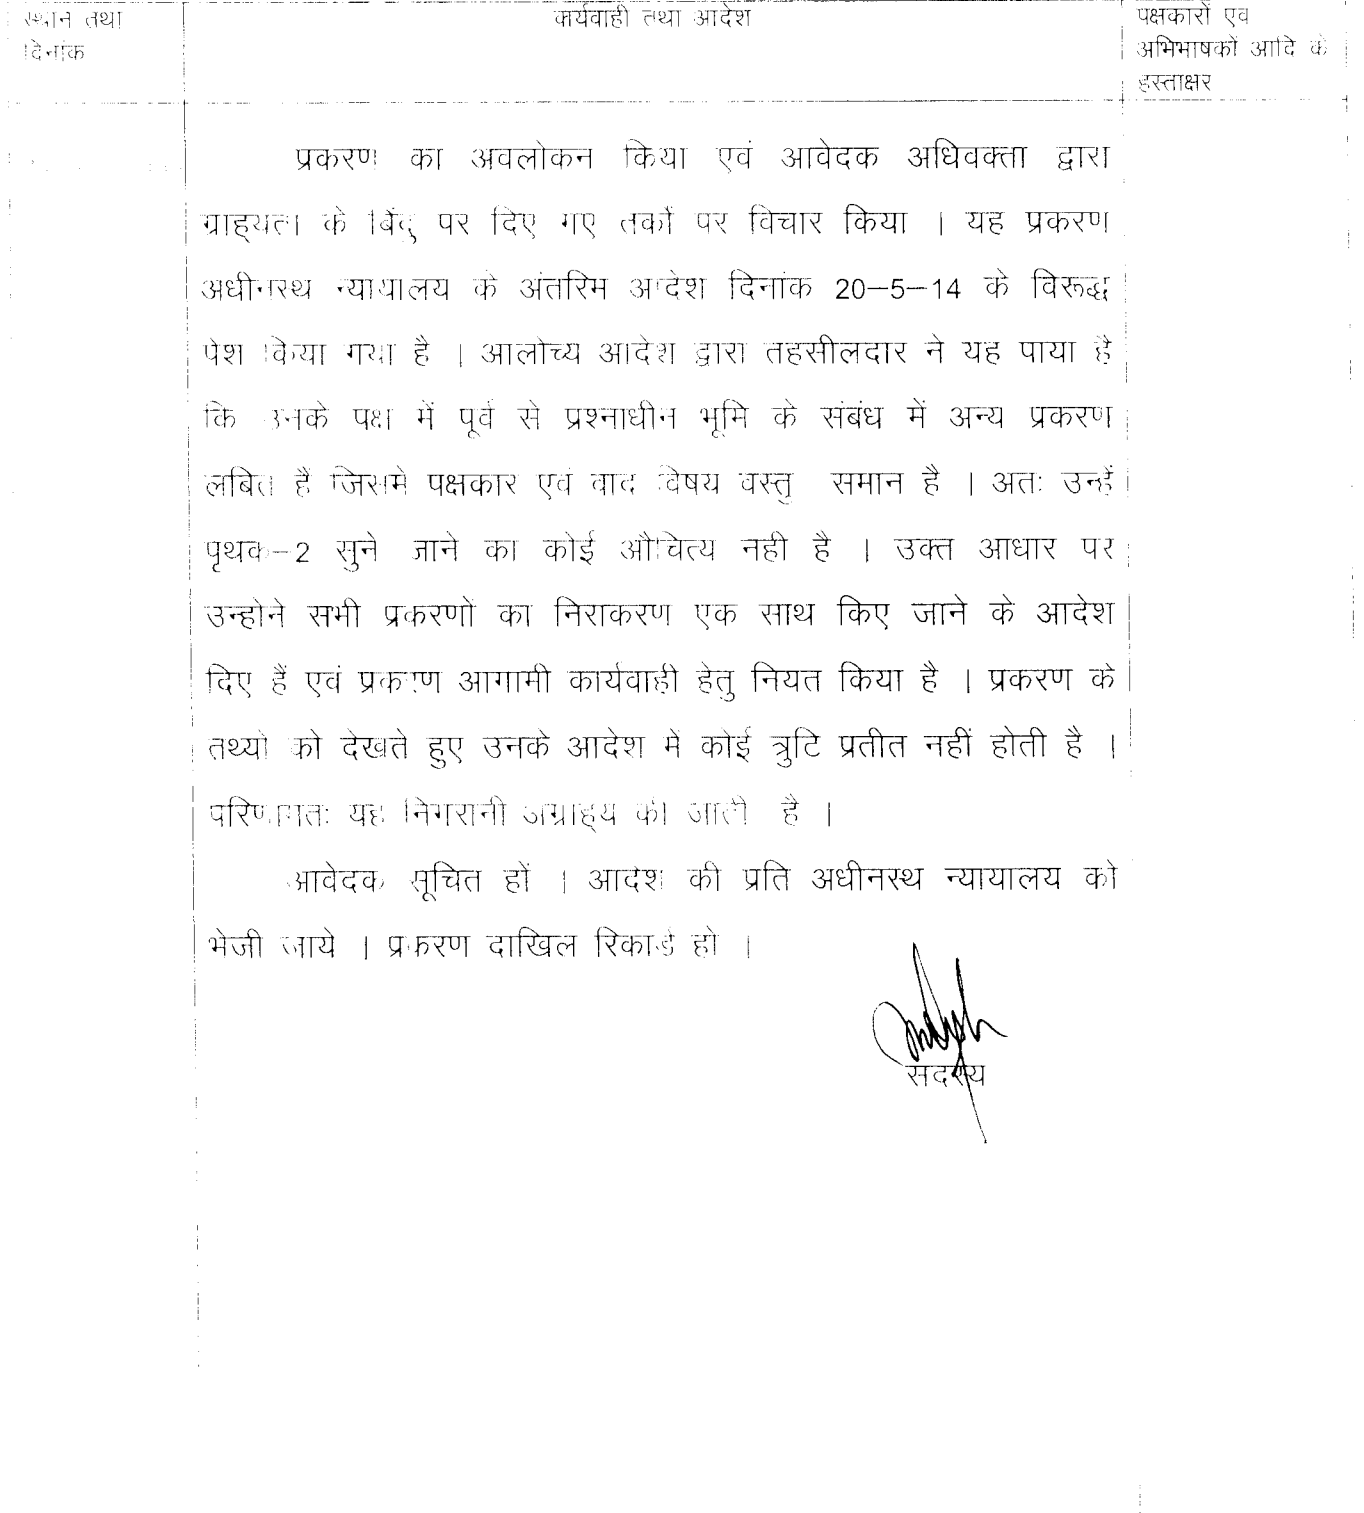 स्थान तथा
दिनांक
कार्यवाही तथा आदेश
पक्षकारों एवं
अभिभाषकों आदि के
हस्ताक्षर
प्रकरण का अवलोकन किया एवं आवेदक अधिवक्ता द्वारा
ग्राह्यता के बिंदु पर दिए गए तर्कों पर विचार किया । यह प्रकरण
अधीनस्थ न्यायालय के अंतरिम आदेश दिनांक 20–5–14 के विरूद्ध
पेश किया गया है । आलोच्य आदेश द्वारा तहसीलदार ने यह पाया है
कि उनके पक्ष में पूर्व से प्रश्नाधीन भूमि के संबंध में अन्य प्रकरण
लंबित हैं जिसमे पक्षकार एवं वाद विषय वस्तु समान है । अतः उन्हें
पृथक–2 सुने जाने का कोई औचित्य नही है । उक्त आधार पर
उन्होने सभी प्रकरणों का निराकरण एक साथ किए जाने के आदेश
दिए हैं एवं प्रकरण आगामी कार्यवाही हेतु नियत किया है । प्रकरण के
तथ्यों को देखते हुए उनके आदेश मे कोई त्रुटि प्रतीत नहीं होती है ।
परिणामतः यह निगरानी अग्राह्य की जाती है ।
आवेदक सूचित हों । आदेश की प्रति अधीनस्थ न्यायालय को
भेजी जाये । प्रकरण दाखिल रिकार्ड हो ।
सदस्य